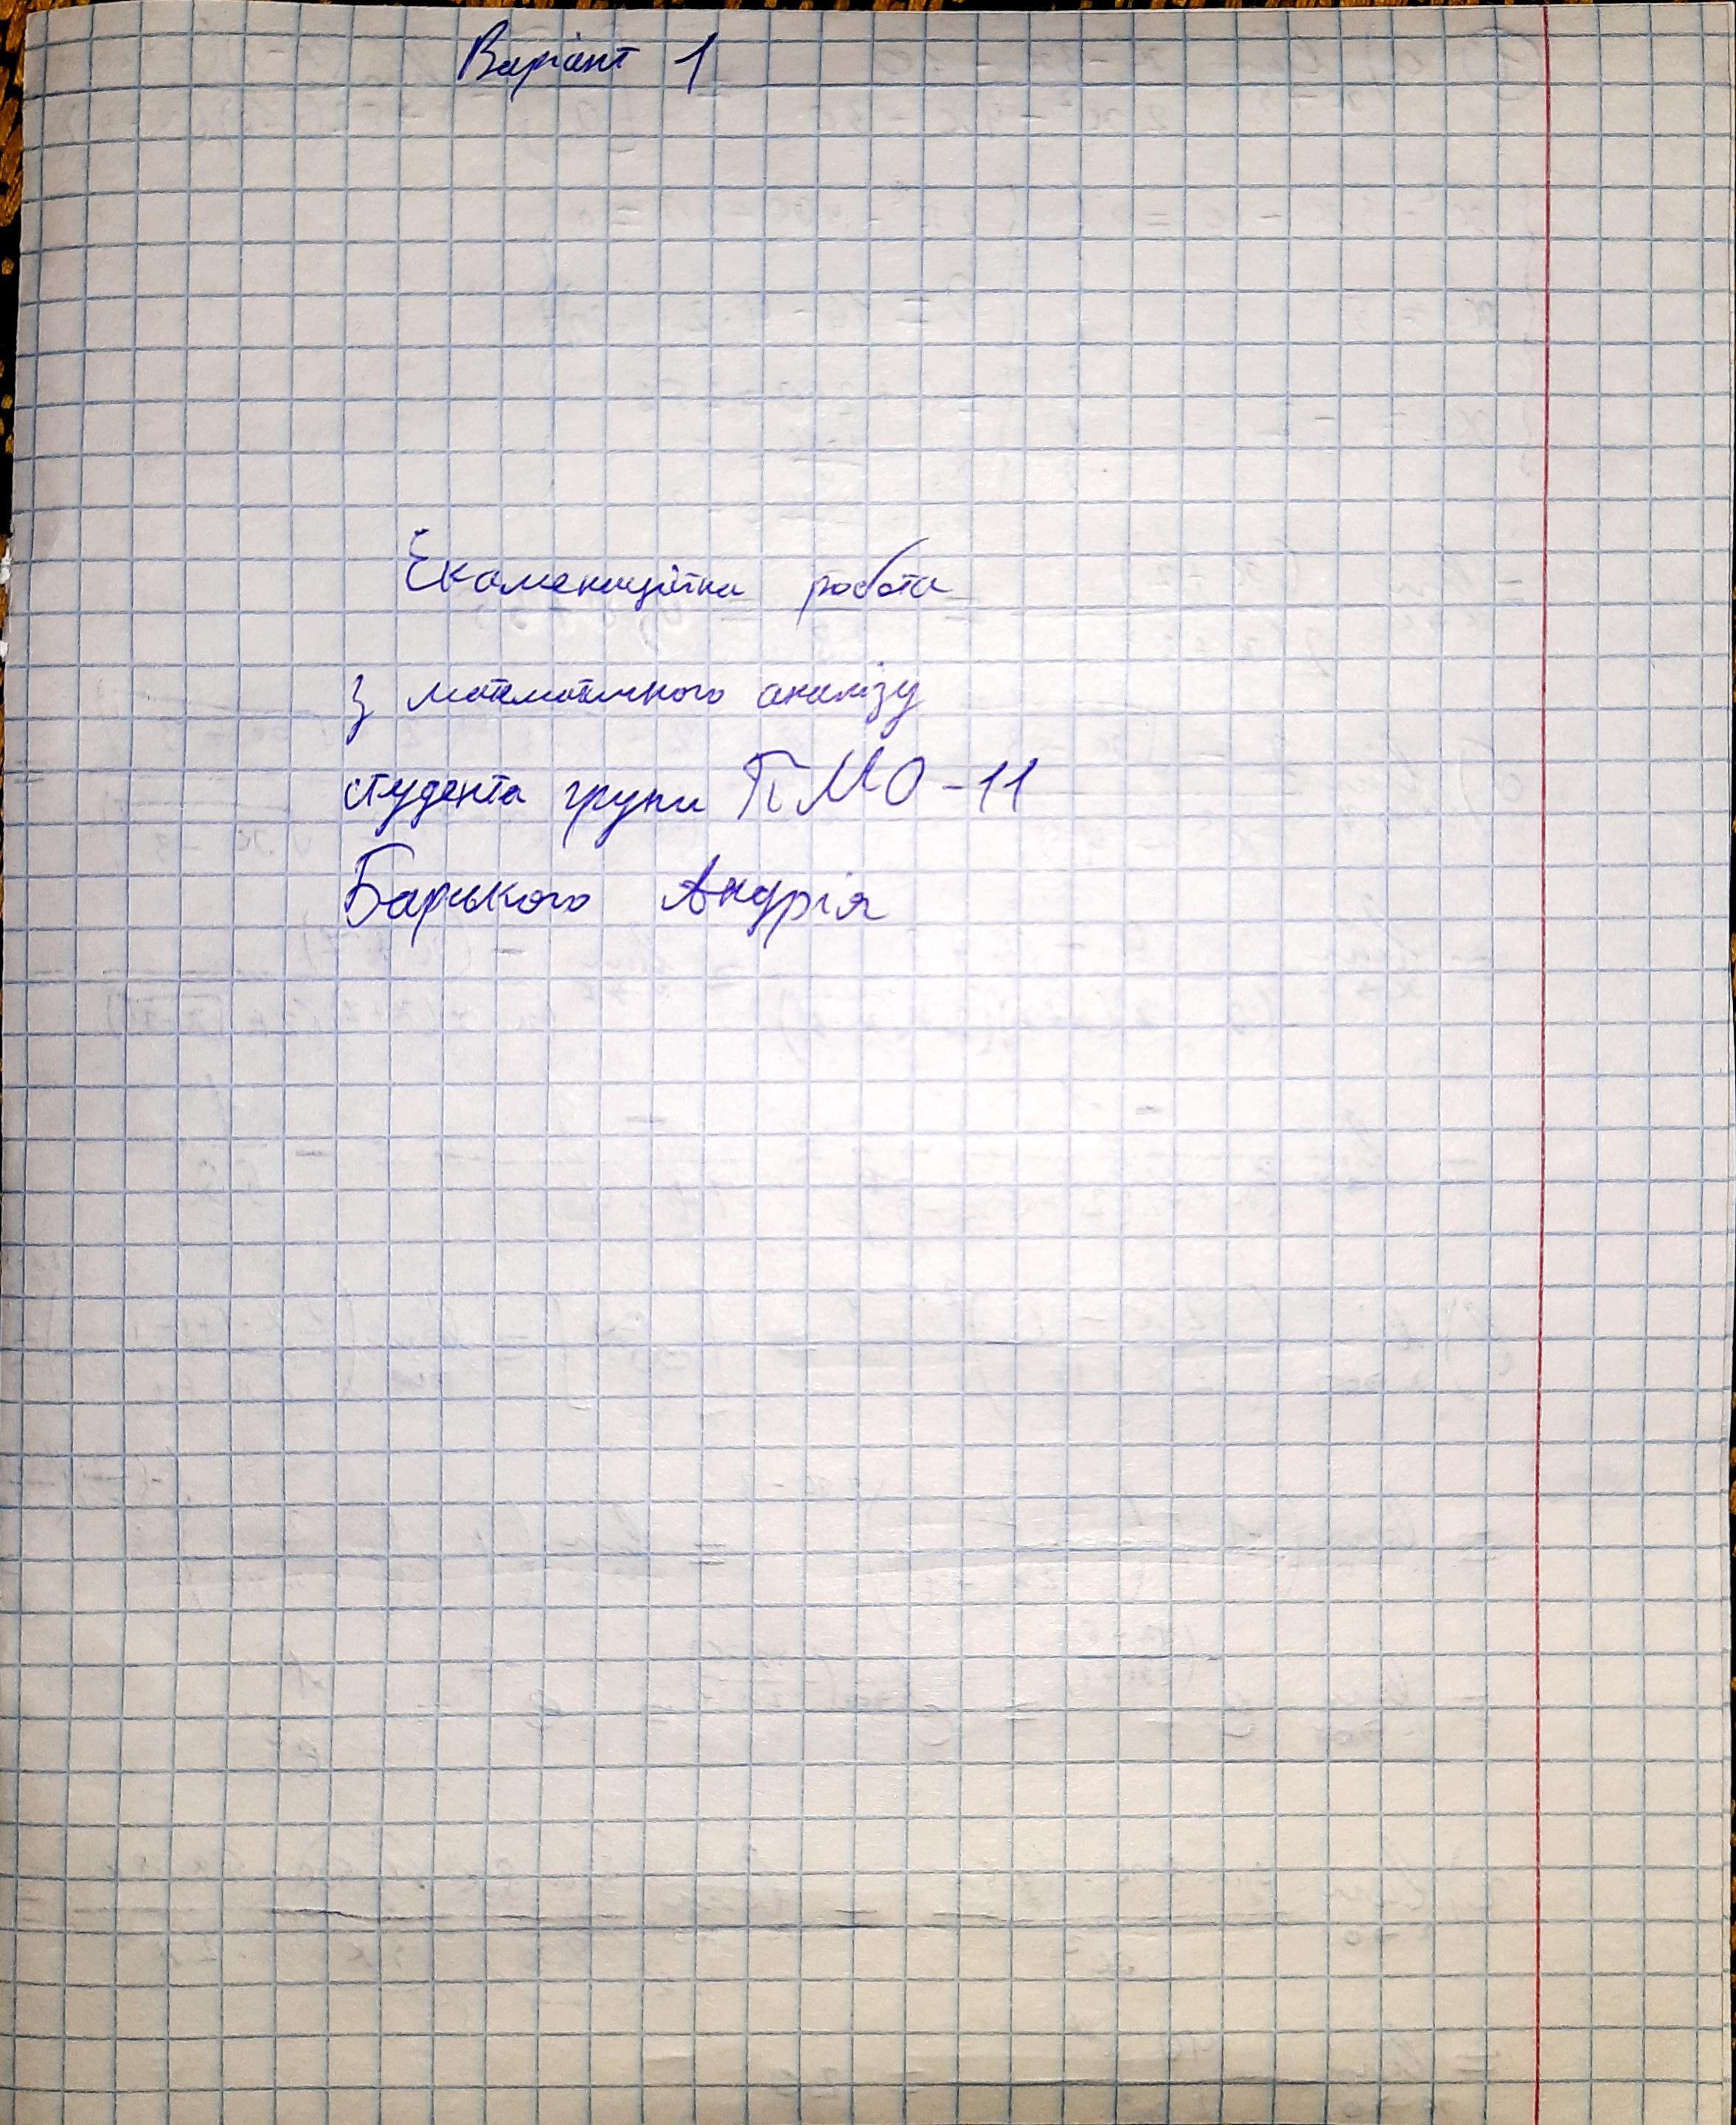 Варіант 1
Екаменаційна робота
з математичного аналізу
студента групи ПМО-11
Барського Андрія